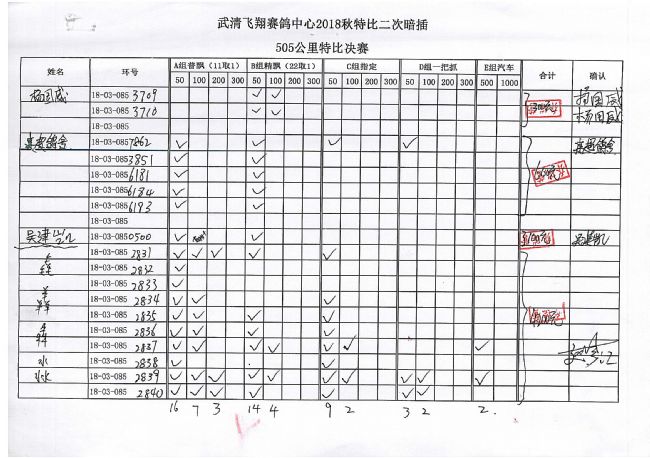 武清飞翔赛鸽中心2018秋特比二次暗插
505公里特比决赛
姓名 环号 A组普飘（11取1） B组精飘（22取1） C组指定 D组一把抓 E组汽车 合计 确认
50 100 200 300 50 100 200 300 50 100 200 300 50 100 200 300 500 1000
杨国威 18-03-085 3709 ✓ ✓ 杨国威
18-03-085 3710 ✓ ✓ 杨国威
18-03-085
18-03-085 7862 ✓ ✓ ✓ ✓
18-03-085 3851 ✓ ✓
18-03-085 6181 ✓ ✓
18-03-085 6184 ✓ ✓
18-03-085 6193 ✓ ✓
18-03-085
18-03-085 0500 ✓ ✓
18-03-085 2831 ✓ ✓ ✓ ✓
18-03-085 2832 ✓
18-03-085 2833 ✓
18-03-085 2834 ✓ ✓ ✓
18-03-085 2835 ✓ ✓ ✓ ✓
18-03-085 2836 ✓ ✓ ✓
18-03-085 2837 ✓ ✓ ✓ ✓ ✓ ✓ ✓
18-03-085 2838 ✓ ✓
18-03-085 2839 ✓ ✓ ✓ ✓ ✓ ✓ ✓ ✓ ✓ ✓
18-03-085 2840 ✓ ✓ ✓ ✓ ✓ ✓ ✓
16 7 3 14 4 9 2 3 2 2